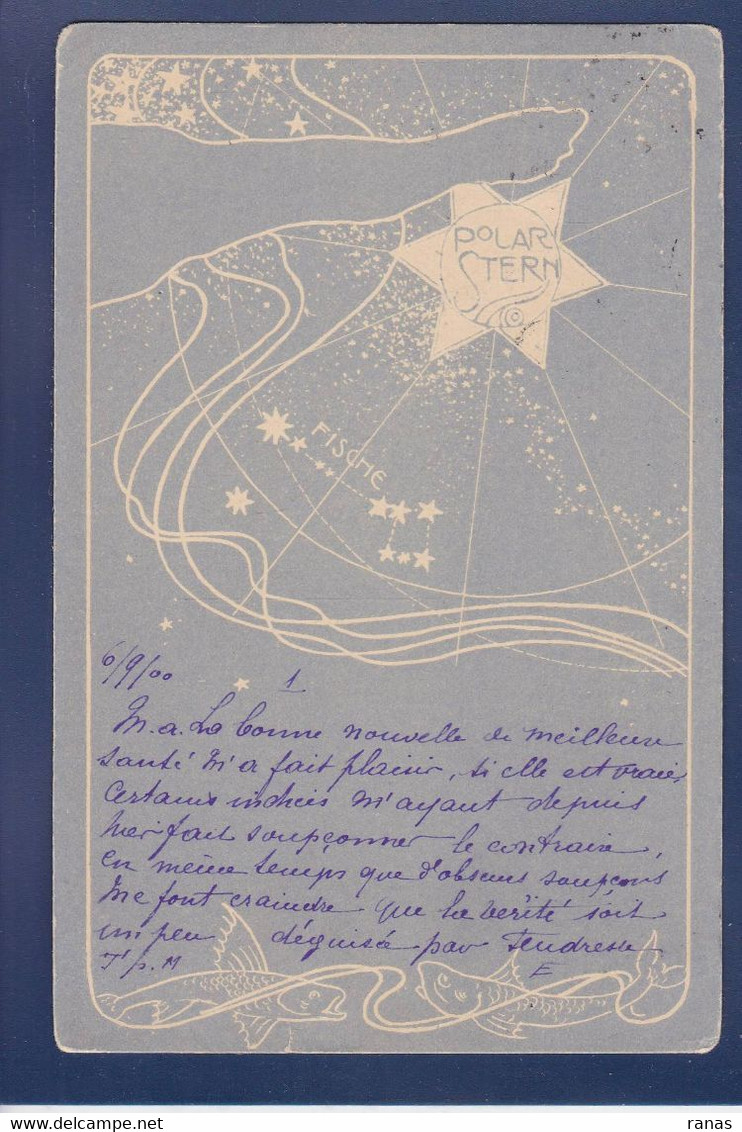 POLAR
STERN
FISCHE
6/9/00 1
M. a. La bonne nouvelle de meilleure
santé m'a fait plaisir, si elle est vraie,
Certains indices m'ayant depuis
hier fait soupçonner le contraire,
en même temps que d'obscurs soupçons
me font craindre que la verité soit
un peu déguisée par tendresse
T. p. M E
delcampe.net
ranas